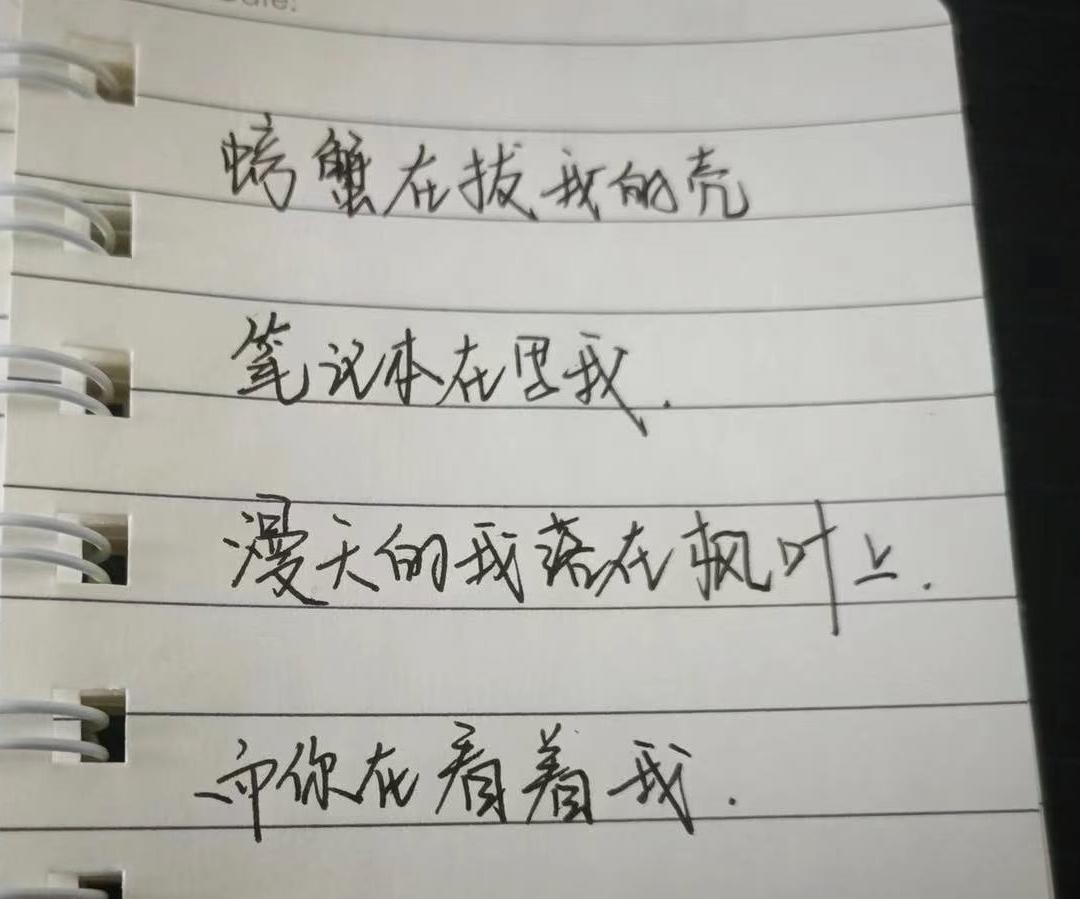 螃蟹在拔我的壳
笔记本在写我.
漫天的我落在枫叶上.
而你在看着我.